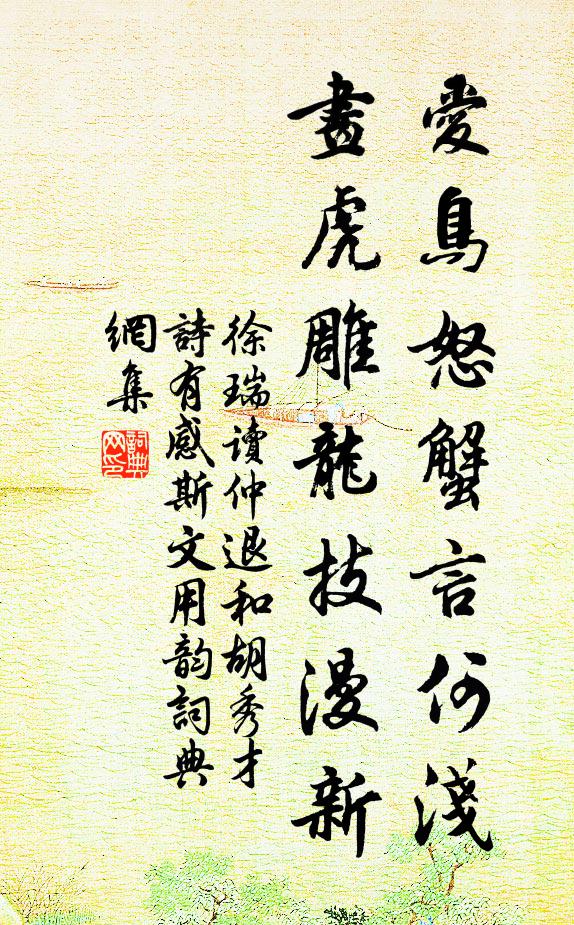 愛鳥怒蟹言何淺
畫虎雕龍技漫新
徐瑞讀仲退和胡秀才
詩有感斯文用韵詞典
網集
詞典
网印